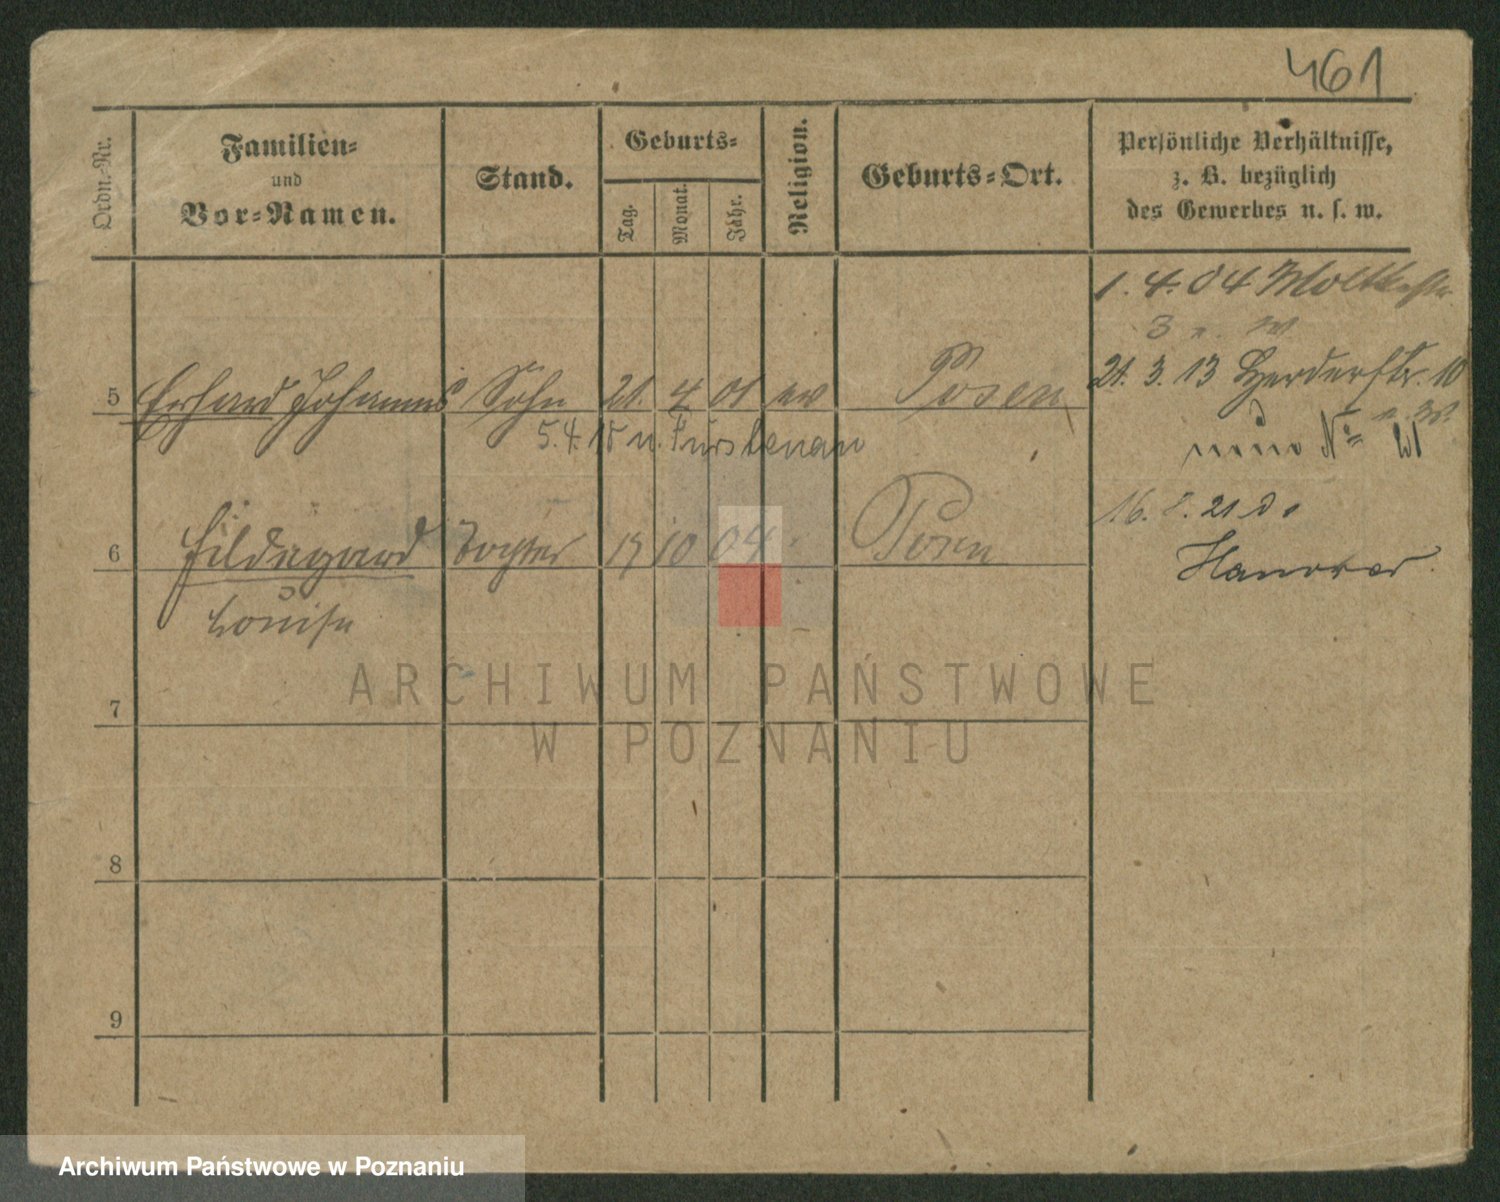 461
Ordn.-Nr.
Familien-
und
Vor-Namen.
Stand.
Geburts-
Tag.
Monat.
Jahr.
Religion.
Geburts-Ort.
Persönliche Verhältnisse,
z. B. bezüglich
des Gewerbes u. s. w.
1. 4. 04 Moltkestr.
3
5 Erhard Johannes Sohn 21. 4 01 ev Posen
21. 3. 13 Herderstr. 10
5. 4. 18 n. Fürstenau
6 Hildegard Tochter 17 10 04 Posen
Louise
16. 21
Hanover
7
8
9
ARCHIWUM PAŃSTWOWE
W POZNANIU
Archiwum Państwowe w Poznaniu